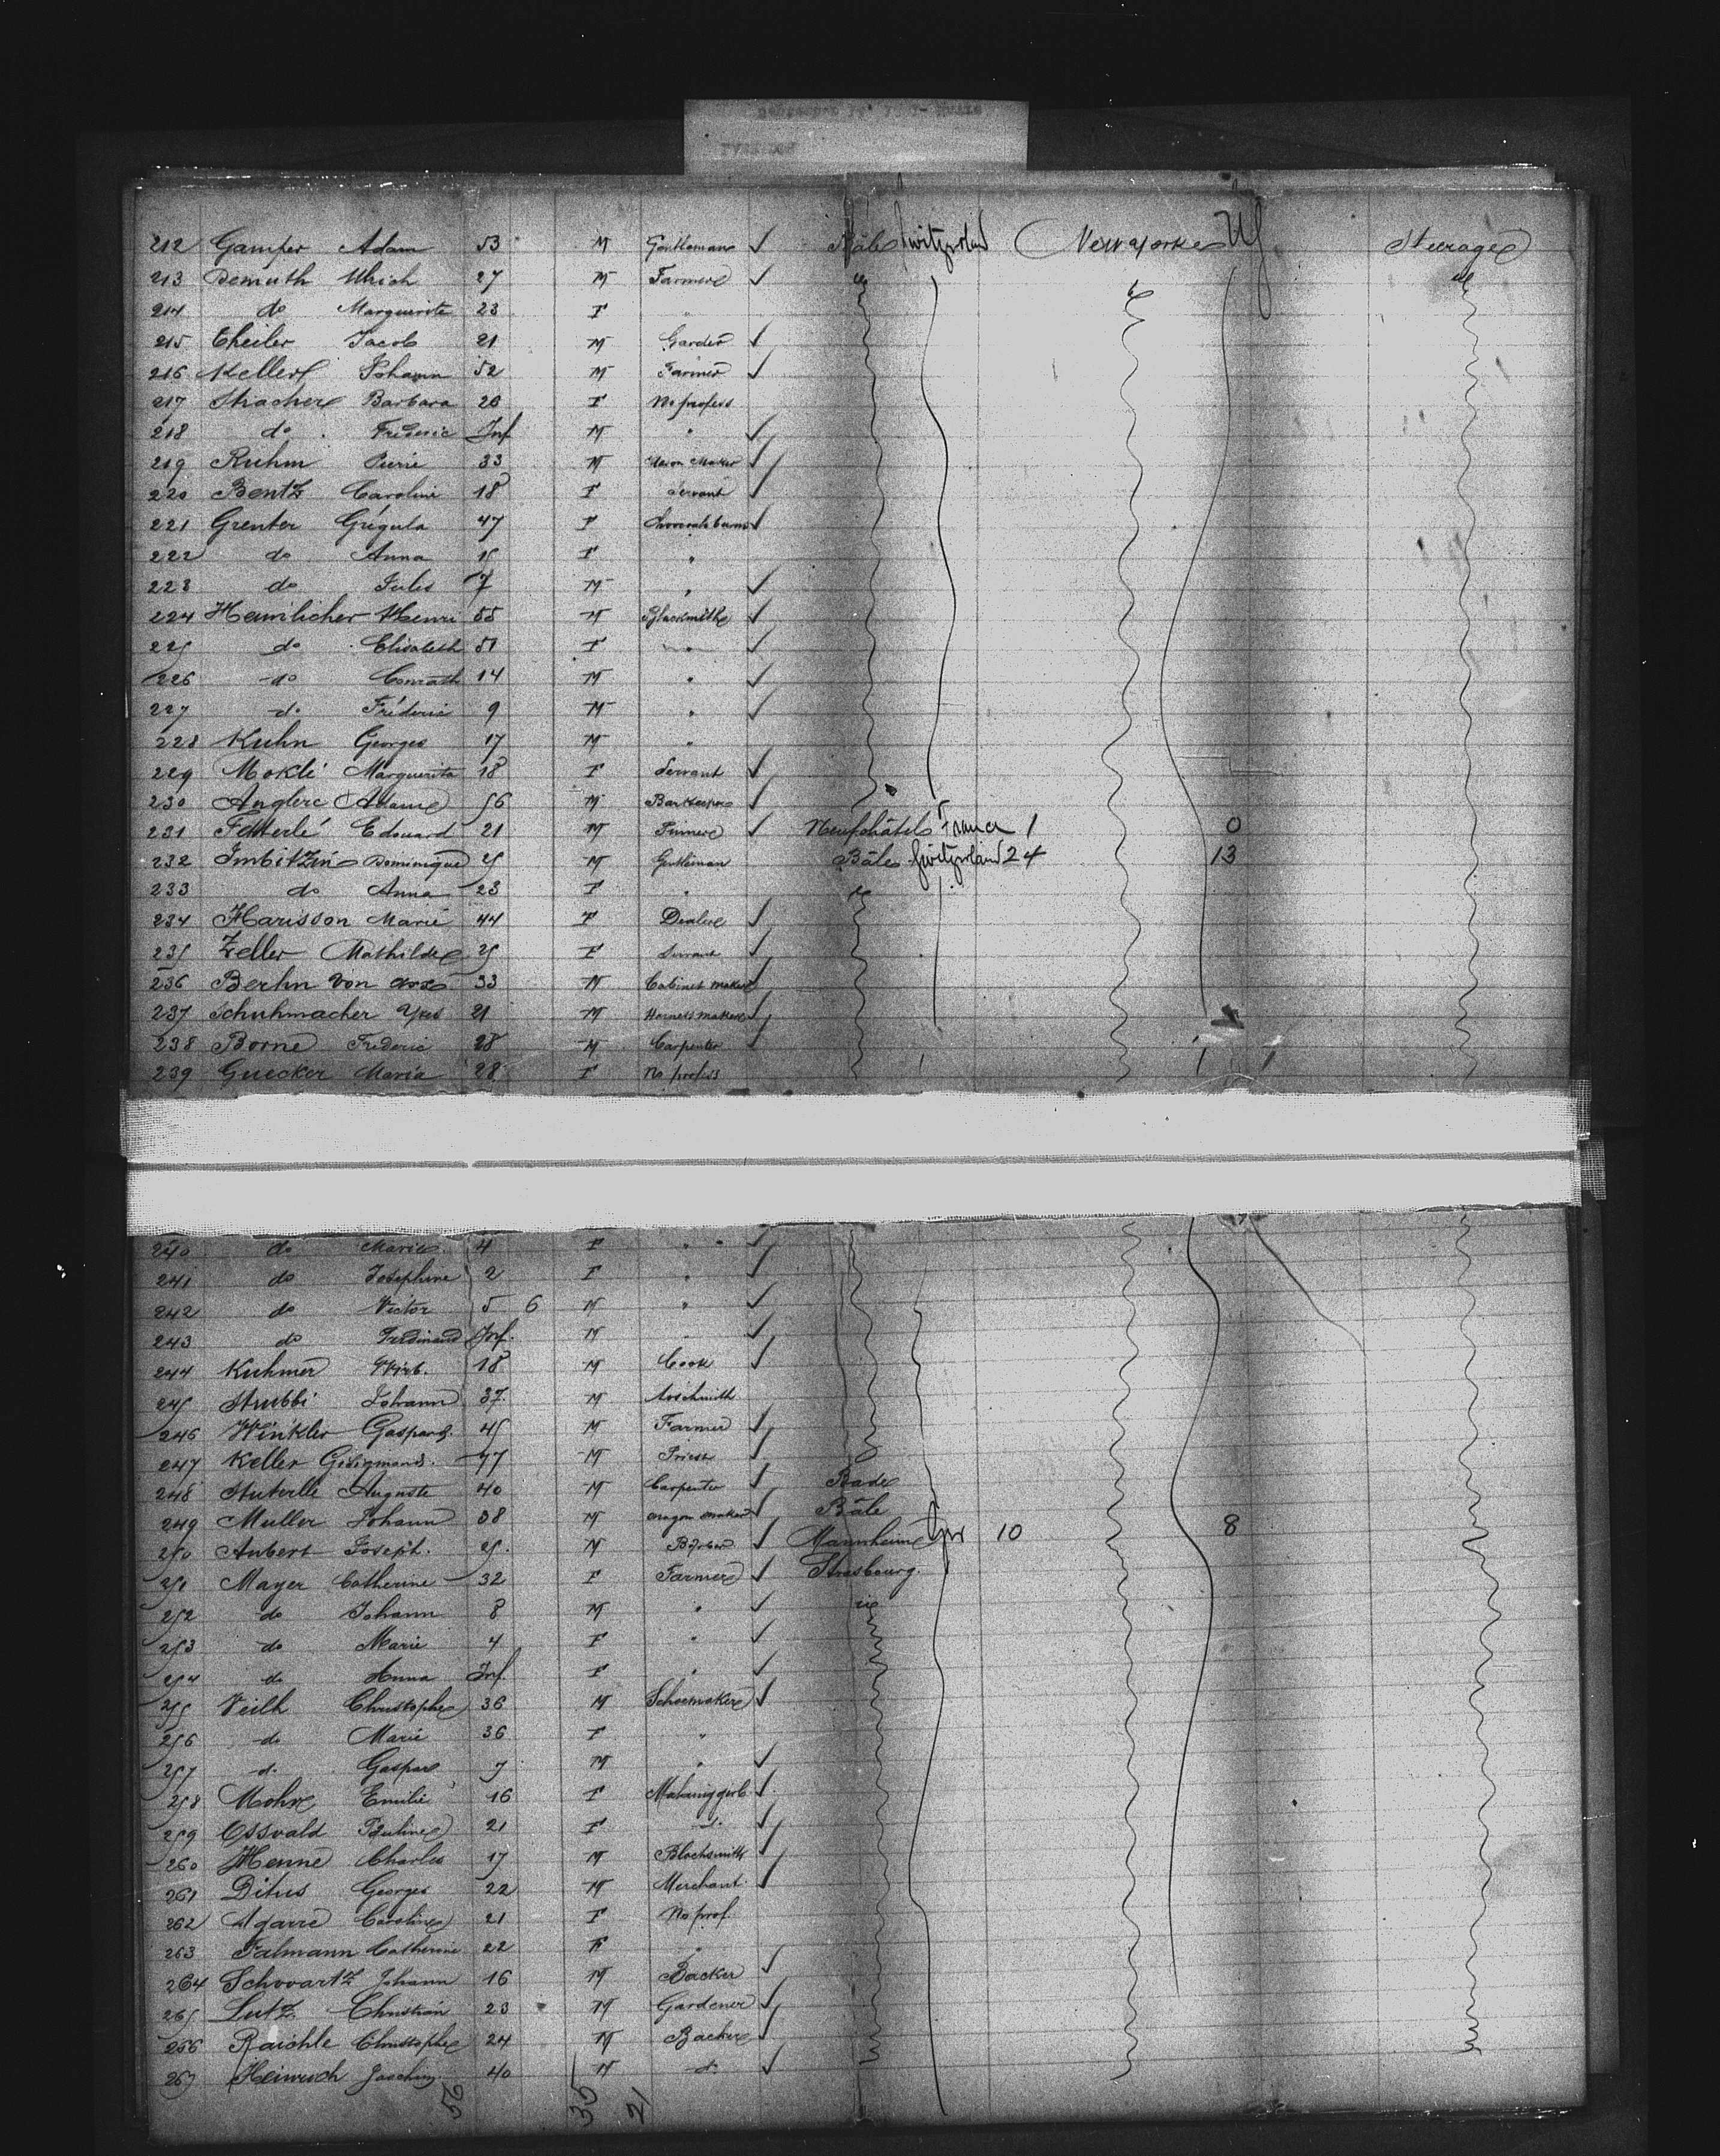 212 Gamper Adam 53 M Gentleman ✓ Bâle Switzerland Newyork US Steerage
213 Demuth Ulrich 27 M Farmer ✓
214 do Marguerite 23 F
215 Theiler Jacob 21 M ✓
216 Keller Johann 52 M Farmer ✓
217 Barbara 26 F No profess
218 do Frederic Inf M " ✓
219 Ruhm Pierre 33 M ✓
220 Bentz Caroline 18 F Servant ✓
221 Grenter 47 F ✓
222 do Anna F "
223 do Jules 7 M " ✓
224 Henri 55 M Blacksmith ✓
225 do Elisabeth 51 F ✓
226 do Conrath 14 M " ✓
227 do Fréderic 9 M " ✓
228 Kuhn Georges 17 M "
229 Moklé Marguerita 18 F Servant ✓
230 56 M Barkeeper ✓
231 Edouard 21 M ✓ Neufchâtel France 1 0
232 Imbitzin Dominique M Gentleman Bâle Switzerland 24 13
233 do Anna 23 F "
234 Harisson Marie 44 F Dealer ✓
235 Zeller Mathilde 25 F Servant ✓
236 Berhn von 33 M Cabinet maker ✓
237 Schuhmacher 21 M Harness maker ✓
238 Borne Frederic 28 M Carpenter ✓
239 Guecker Maria 28 F No profess
240 do Marie 4 F " " ✓
241 do Josephine 2 F " ✓
242 do Victor 5 6 M " ✓
243 do Ferdinand Inf. M ✓
244 Kuhmer 18 M Cook ✓
245 Strubbi Johann 37 M
246 Winkler Gaspard 45 M Farmer ✓
247 Keller 47 M Priest ✓
248 Auguste 40 M Carpenter ✓ Bade
249 Muller Johann 38 M maker ✓ Bâle
250 Aubert Joseph. 25. M ✓ Mannheim Ger 10 8
251 Mayer Catherine 32 F Farmer ✓ Strasbourg
252 do Johann 8 M " ✓
253 do Marie 4 F " ✓
254 do Anna Inf. F " ✓
255 Veilh Christophe 36 M Schoemaker ✓
256 do Marie 36 F "
257 d. Gaspar 7 M " ✓
258 Mohr Emilie 16 F ✓
259 Osswald Pauline 21 F d. ✓
260 Henne Charles 17 M Blacksmith ✓
261 Ditus Georges 22 M Merchant ✓
262 Caroline 21 F No prof.
263 Falmann Catherine 22 F "
264 Schwartz Johann 16 M Backer ✓
265 Lutz Christian 23 M Gardener ✓
266 Raichle Christophe 24 M Backer ✓
267 Heinrich 40 M d. ✓
56 35 21